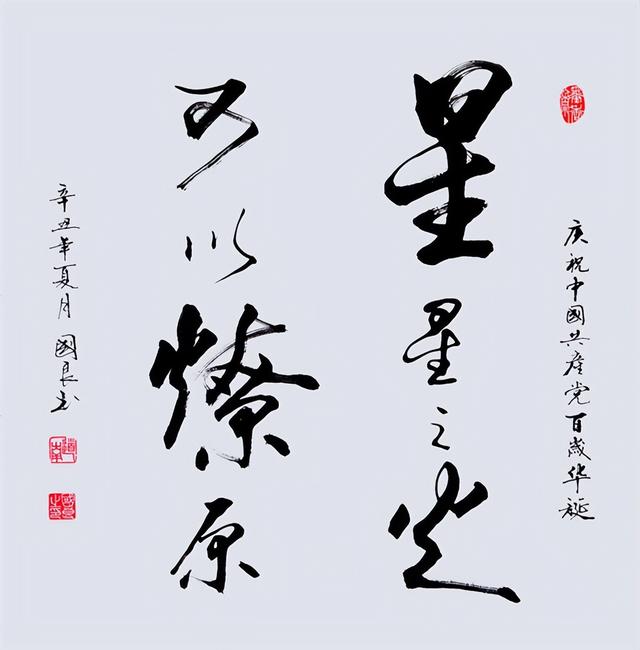 庆祝中國共産党百歲华誕
星星之火
可以燎原
辛丑年夏月 國良书